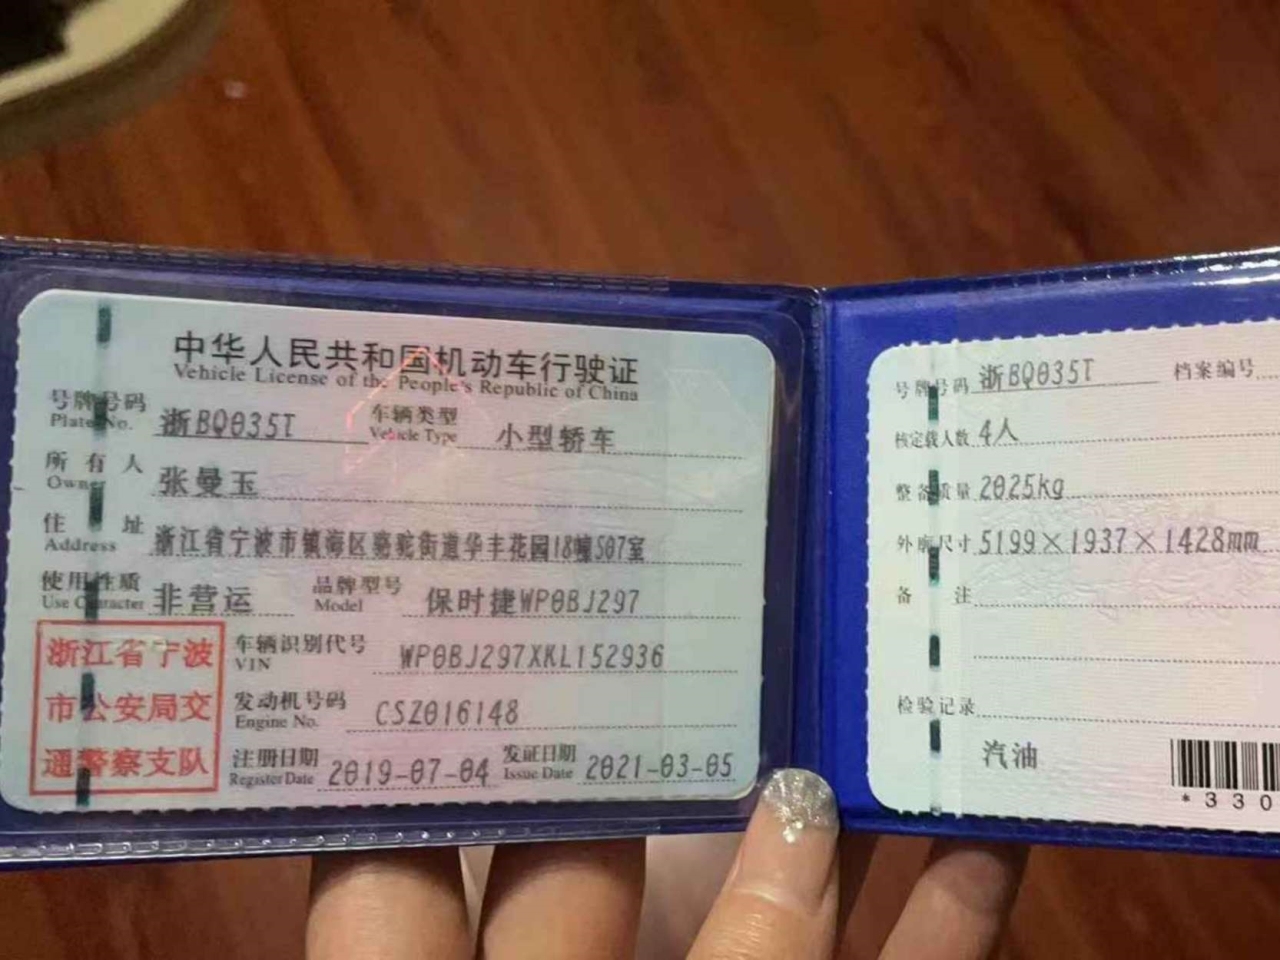 中华人民共和国机动车行驶证
Vehicle License of the People's Republic of China
号牌号码 浙BQ035T 车辆类型 小型轿车
Plate No. Vehicle Type
所有人 张曼玉
Owner
住址 浙江省宁波市镇海区骆驼街道华丰花园18幢507室
Address
使用性质 非营运 品牌型号 保时捷WP0BJ297
Use Character Model
浙江省宁波
市公安局交
通警察支队
车辆识别代号 WP0BJ297XKL152936
VIN
发动机号码 CSZ016148
Engine No.
注册日期 2019-07-04 发证日期 2021-03-05
Register Date Issue Date
号牌号码 浙BQ035T 档案编号
核定载人数 4人
整备质量 2025kg
外廓尺寸 5199×1937×1428mm
备注
检验记录
汽油
*330